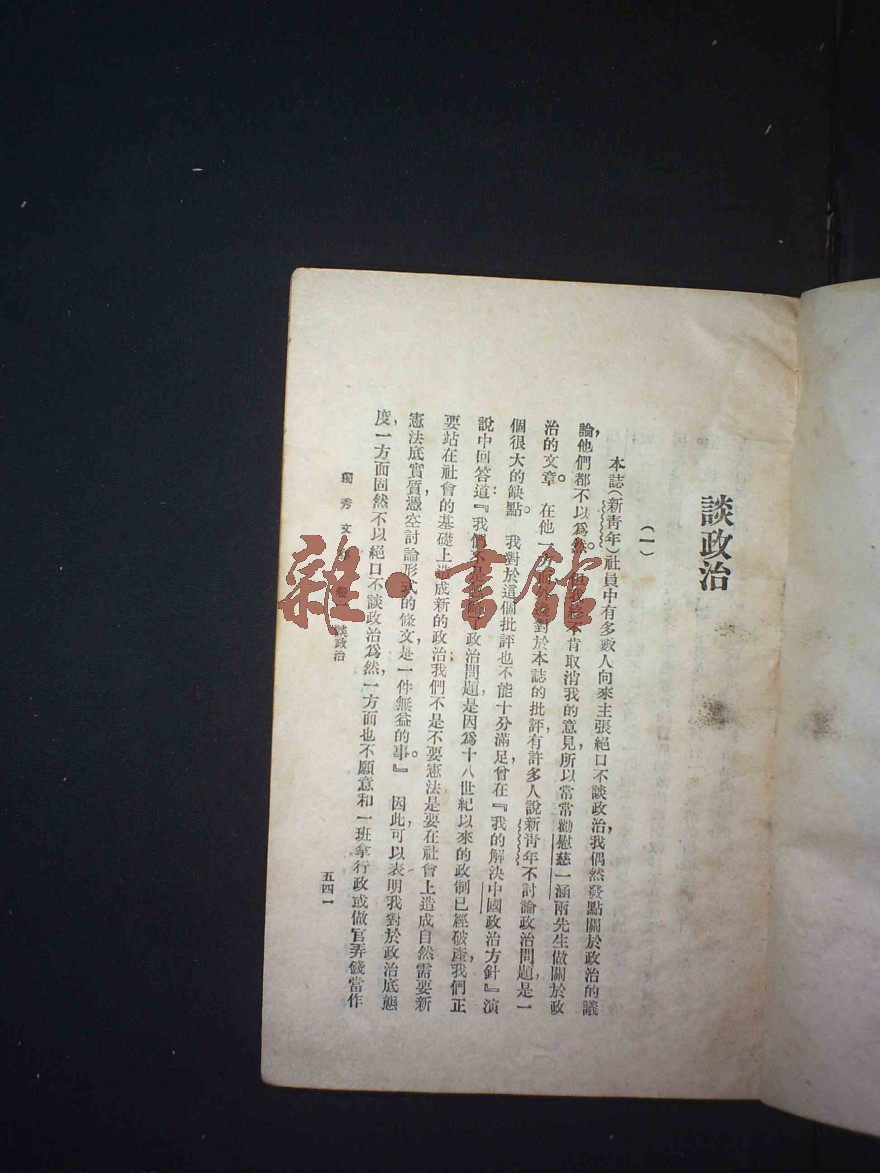 談政治
(一)
本誌(新靑年)社員中有多數人向來主張絕口不談政治,我偶然發點關於政治的議
論,他們都不以爲然。但我終不肯取消我的意見,所以常常勸慰慈一涵兩先生做關於政
治的文章。在他一方面,外邊對於本誌的批評,有許多人說新靑年不討論政治問題,是一
個很大的缺點。我對於這個批評也不能十分滿足,曾在『我的解決中國政治方針』演
說中回答道:『我們不是忽略了政治問題,是因爲十八世紀以來的政制已經破產,我們正
要站在社會的基礎上造成新的政治;我們不是不要憲法,是要在社會上造成自然需要新
憲法底實質,憑空討論形式的條文,是一件無益的事。』因此可以表明我對於政治底態
度,一方面固然不以絕口不談政治爲然,一方面也不願意和一班拿行政或做官弄錢當作
獨秀文存 卷一 談政治
五四一
雜·書館